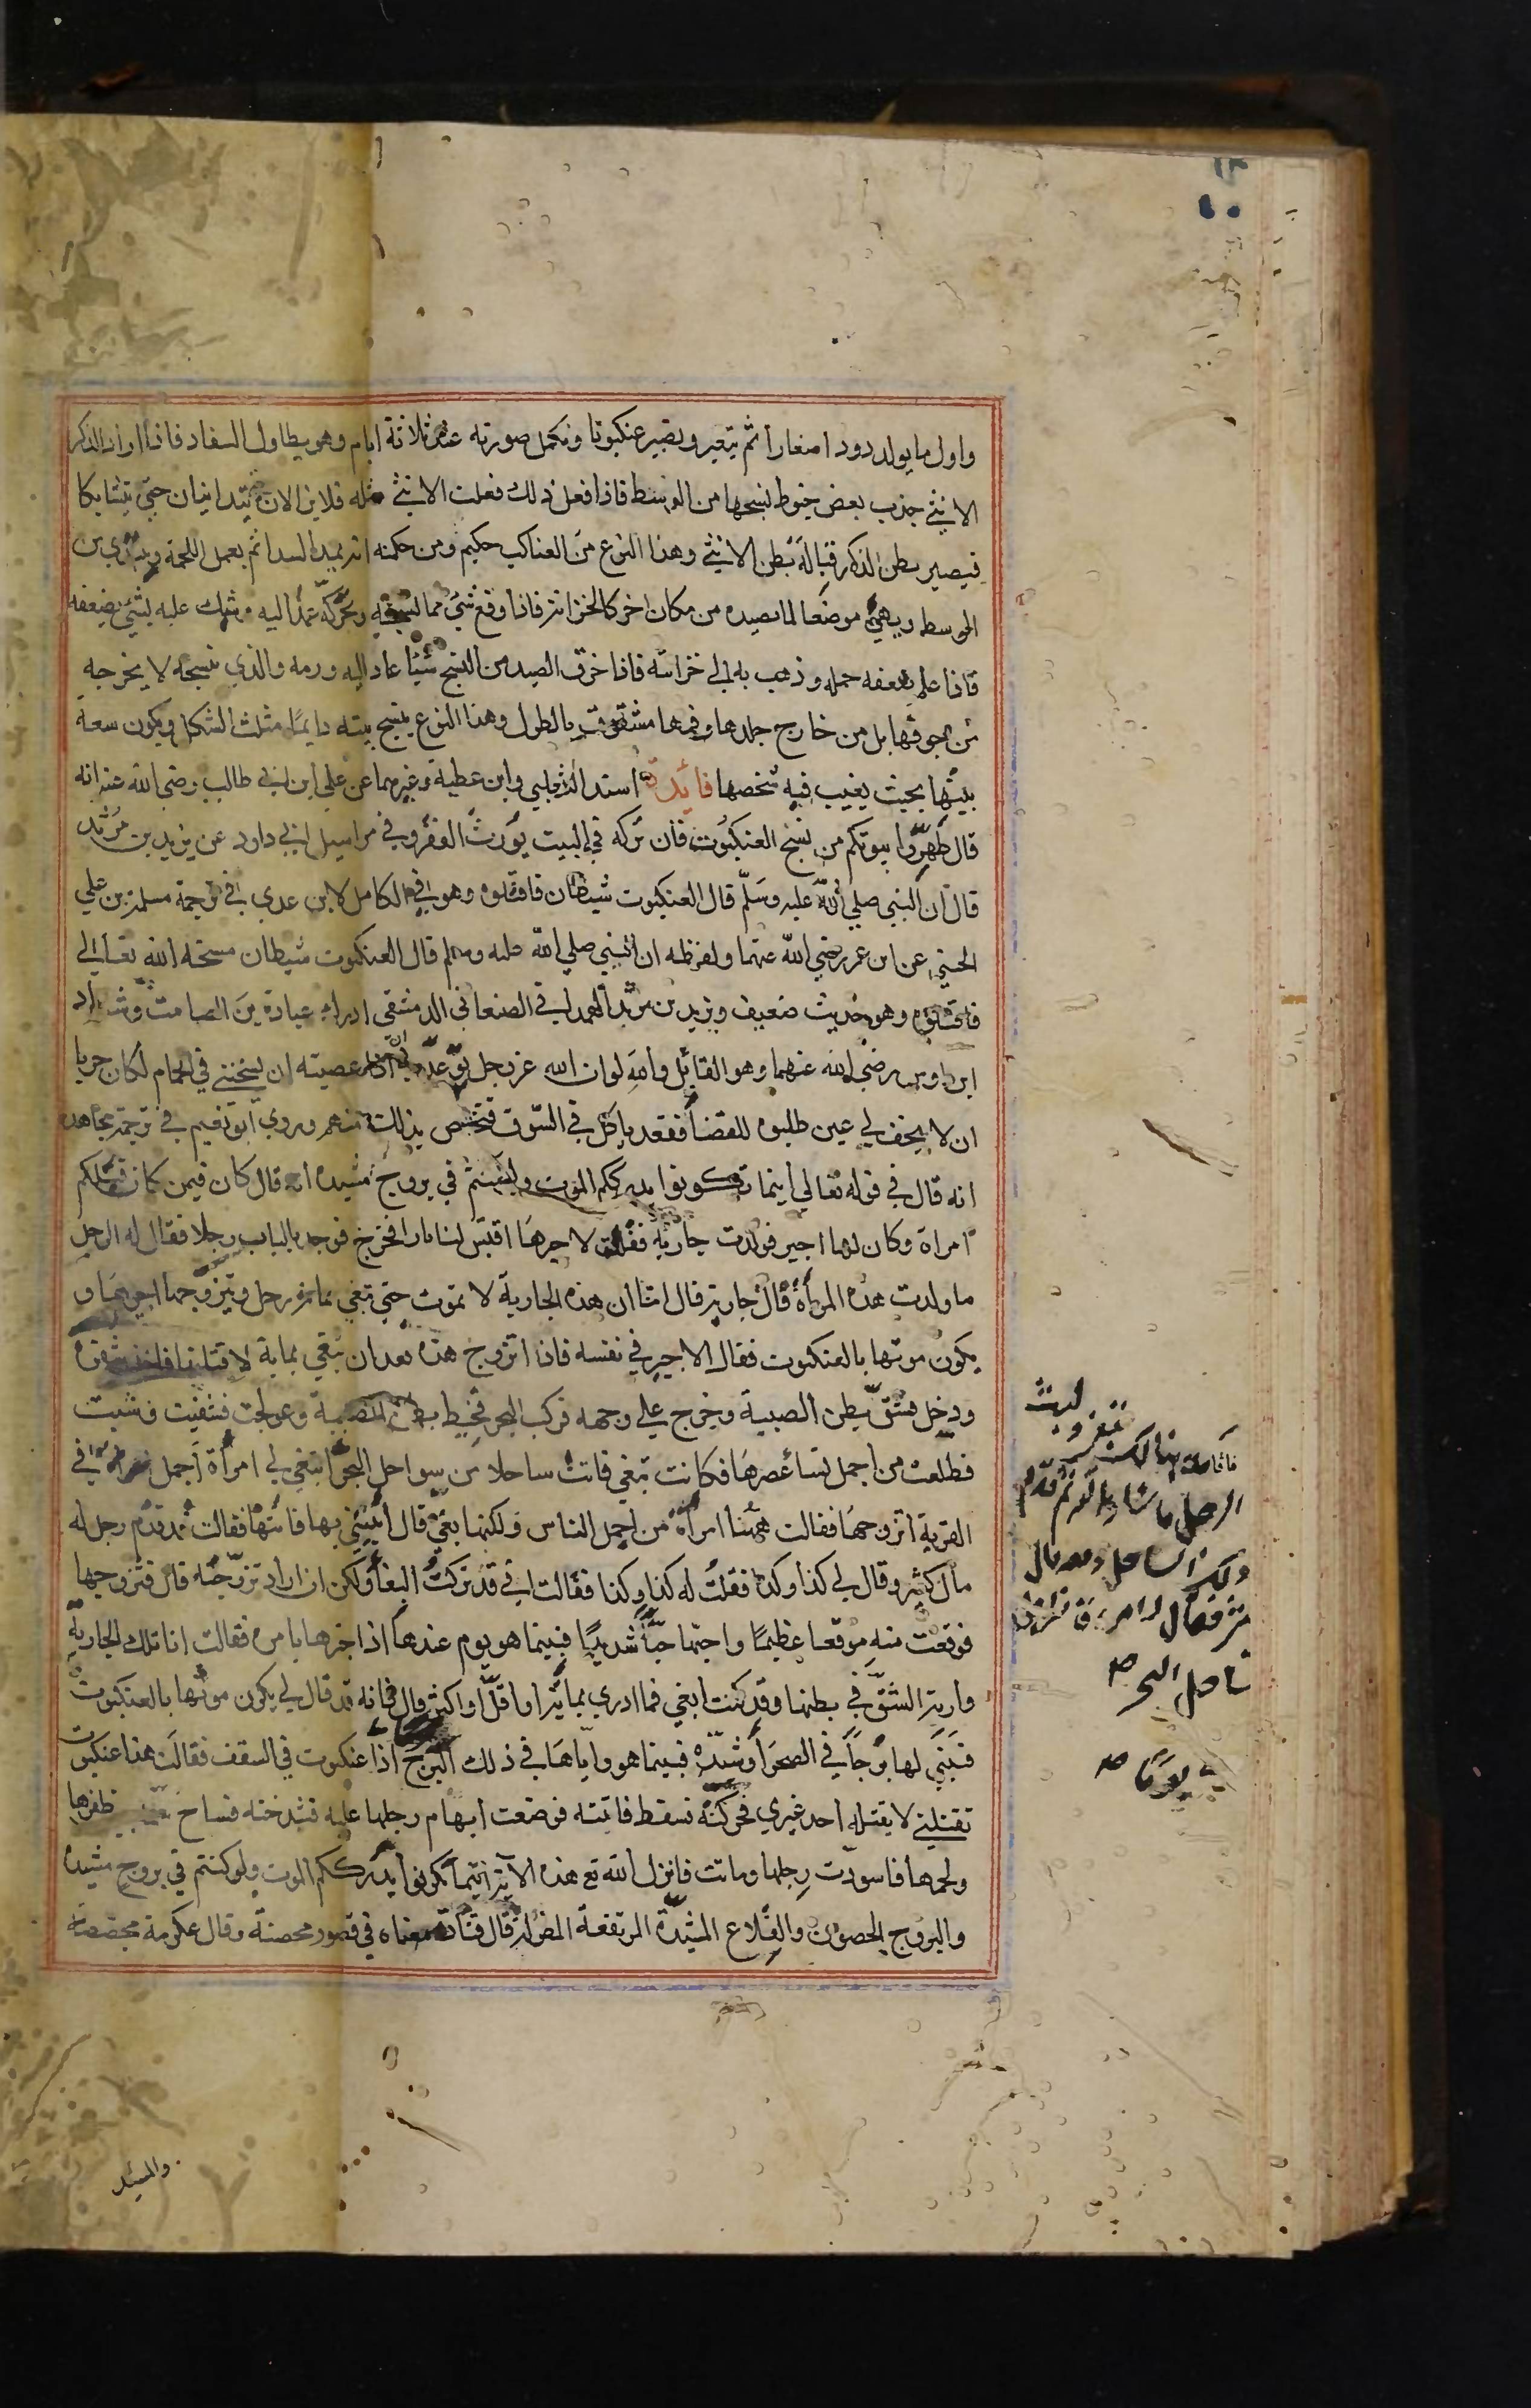 واول ما يولد دودا صغارا ثم يتغير ويصير عنكبوتا وتكمل صورته عند ثلاثة ايام وهو يطاول السفاد فاذا اراد الذكر
الانثى جذب بعض خيوط نسجها من الوسط فاذا فعل ذلك فعلت الانثى مثله فلايزالان يتدانيان حتى يتشابكا
فيصير بطن الذكر قبالة بطن الانثى وهذا النوع من العناكب حكيم ومن حكمته انه يمد السدا ثم يعمل اللحمة ويبتدي من
الوسط ويهيئ موضعا لما يصيده من مكان اخر كالخزانة فاذا وقع شيئ مما نسجه وتحركّ عمد اليه وشبك عليه بشيئ يضعفه
فاذا علم ضعفه حمله وذهب به الى خزانته فاذا خرق الصيد من النسج شيئا عاد اليه ورمه والذي تنسجه لا يخرجه
من جوفها بل من خارج جلدها وفمها مشقوق بالطول وهذا النوع ينسج بيته دايما مثلث الشكل ويكون سعة
بيتها بحيث يغيب فيه شخصها فائدة اسند الثعلبي وابن عطية وغيرهما عن علي ابن ابي طالب رضي الله عنه انه
قال طهروا بيوتكم من نسج العنكبوت فان تركه في البيت يورث الفقر وفي مراسيل ابي داود عن يزيد بن مرثد
قال ان النبي صلي الله عليه وسلم قال العنكبوت شيطان فاقتلوه وهو في الكامل لابن عدي في ترجمة مسلمة بن علي
الخشني عن ابن عمر رضي الله عنهما ولفظه ان النبي صلي الله عليه وسلم قال العنكبوت شيطان مسخه الله تعالى
فاقتلوه وهو حديث ضعيف ويزيد بن مرثد الهمداني الصنعاني الدمشقي ادرك عبادة بن الصامت وشداد
ابن اوس رضي الله عنهما وهو القائل والله لو ان الله عز وجل توعدني ان عصيته ان يسجنني في الحمام لكان حريا
ان لا يجف لي عين طلبوه للقضا فقعد ياكل في السوق فتخلص بذلك منهم وروي ابو نعيم في ترجمة مجاهد
انه قال في قوله تعالي اينما تكونوا يدرككم الموت ولو كنتم في بروج مشيدة انه قال كان فيمن كان قبلكم
امراة وكان لها اجير فولدت جارية فقالت لاجيرها اقتبس لنا نارا فخرج فوجد بالباب رجلا فقال له الرجل
ما ولدت هذه المرأة قال جارية قال اما ان هذه الجارية لا تموت حتي تبغي بماية رجل ويتزوجها اجيرها و
يكون موتها بالعنكبوت فقال الاجير في نفسه فاذا اتزوج هذه بعد ان تبغي بماية لاقتلنها فاخذ شفرة
ودخل فشق بطن الصبية وخرج علي وجهه فركب البحر فخيط بطن الصبية وعولجت فشفيت وشبت
فطلعت من اجمل نسا عصرها فكانت تبغي فاتت ساحلا من سواحل البحر ابتغي لي امرأة اجمل امرأة في
القرية اتزوجها فقالت ههنا امرأة من اجمل الناس ولكنها بغي قال ايتيني بها فاتتها فقالت قد قدم رجل له
مال كثير وقال لي كذا وكذا فقلت له كذا وكذا فقالت اني قد تركت البغا ولكن ان اراد تزوجته قال فتزوجها
فوقعت منه موقعا عظيما واحبها حبا شديدا فبينما هو يوم عندها اذ اخبرها بامره فقالت انا تلك الجارية
وارته الشق في بطنها وقد كنت ابغي فما ادري بماية او اقل او اكثر قال فانه قد قال لي يكون موتها بالعنكبوت
فبني لها برجا في الصحرا وشيده فبينما هو واياها في ذلك البرج اذا عنكبوت في السقف فقالت هذا عنكبوت
تقتلني لا يقتله احد غيري فحركته فسقط فاتته فوضعت ابهام رجلها عليه فشدخته فساخ سمه بين ظفرها
ولحمها فاسودت رجلها وماتت فانزل الله تع هذه الآية اينما تكونوا يدرككم الموت ولو كنتم في بروج مشيدة
والبروج الحصون والقلاع المشيدة المرتفعة المطولة قال قتادة معناه في قصور محصنة وقال عكرمة مجصصة
فاقامت هنالك
الرجل ما شا الله ثم قدم
ذلك الساحل ومعه مال
كثير فقال لامرءة من
ساحل البحر صح
يوما صح
والمشيد